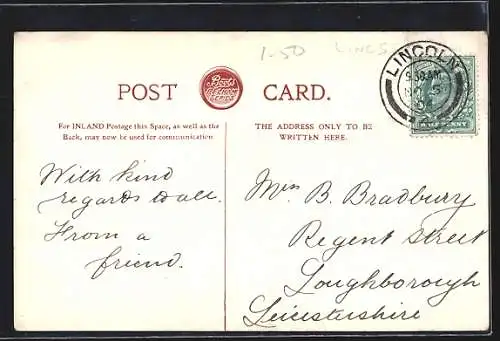 1-50 LINCS
POST CARD.
Boots
LINCOLN
9.30 AM
For INLAND Postage this Space, as well as the
Back, may now be used for communication
THE ADDRESS ONLY TO BE
WRITTEN HERE.
With kind
regards to all.
From a
friend.
Miss B. Bradbury
Regent Street
Loughborough
Leicestershire